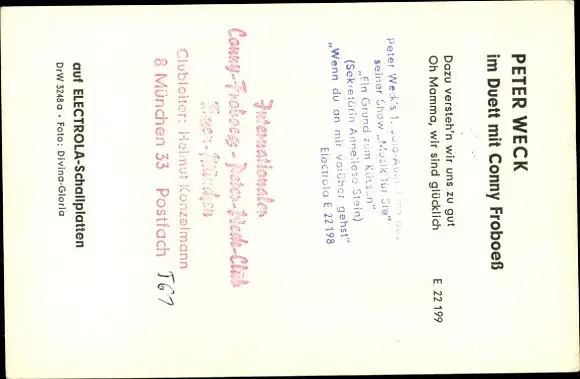 PETER WECK
im Duett mit Conny Froboeß
Dazu versteh'n wir uns zu gut
Oh Mamma, wir sind glücklich
E 22 199
Peter Weck's 1. Solo-Aufnahme aus
seiner Show „Musik für Sie"
„Ein Grund zum Küssen"
(Sekretärin Anneliese Stein)
„Wenn du an mir vorüber gehst"
Electrola E 22 198
Internationaler
Conny-Froboess - Peter-Weck-Club
München
Clubleiter: Helmut Konzelmann
8 München 33 Postfach 767
auf ELECTROLA-Schallplatten
DrW 3248a • Foto: Divina-Gloria